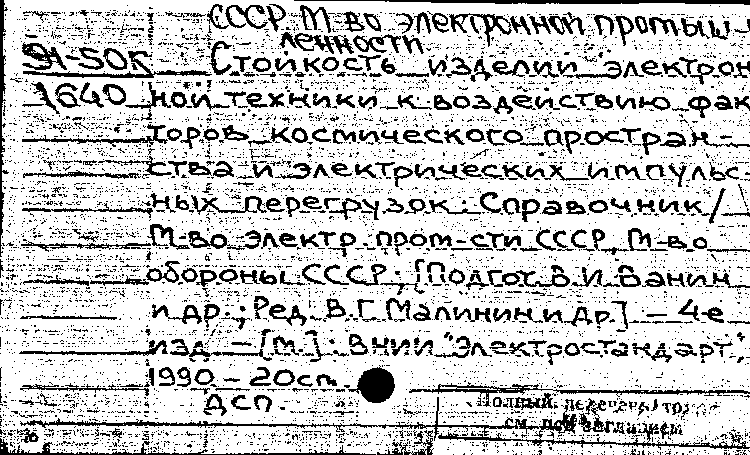 СССР. М-во электронной промыш-
ленности
91-50к Стойкость изделий электрон
1640 ной техники к воздействию фак
торов космического простран-
ства и электрических импульс-
ных перегрузок: Справочник/
М-во электр. пром-сти СССР, М-во
обороны СССР; [Подгот. В.И. Ванин
и др.; Ред. В.Г. Малинин и др.] – 4-е
изд – [М.]: ВНИИ "Электростандарт",
1990 – 20см.
ДСП.
Полный перечень
см. под заглавием